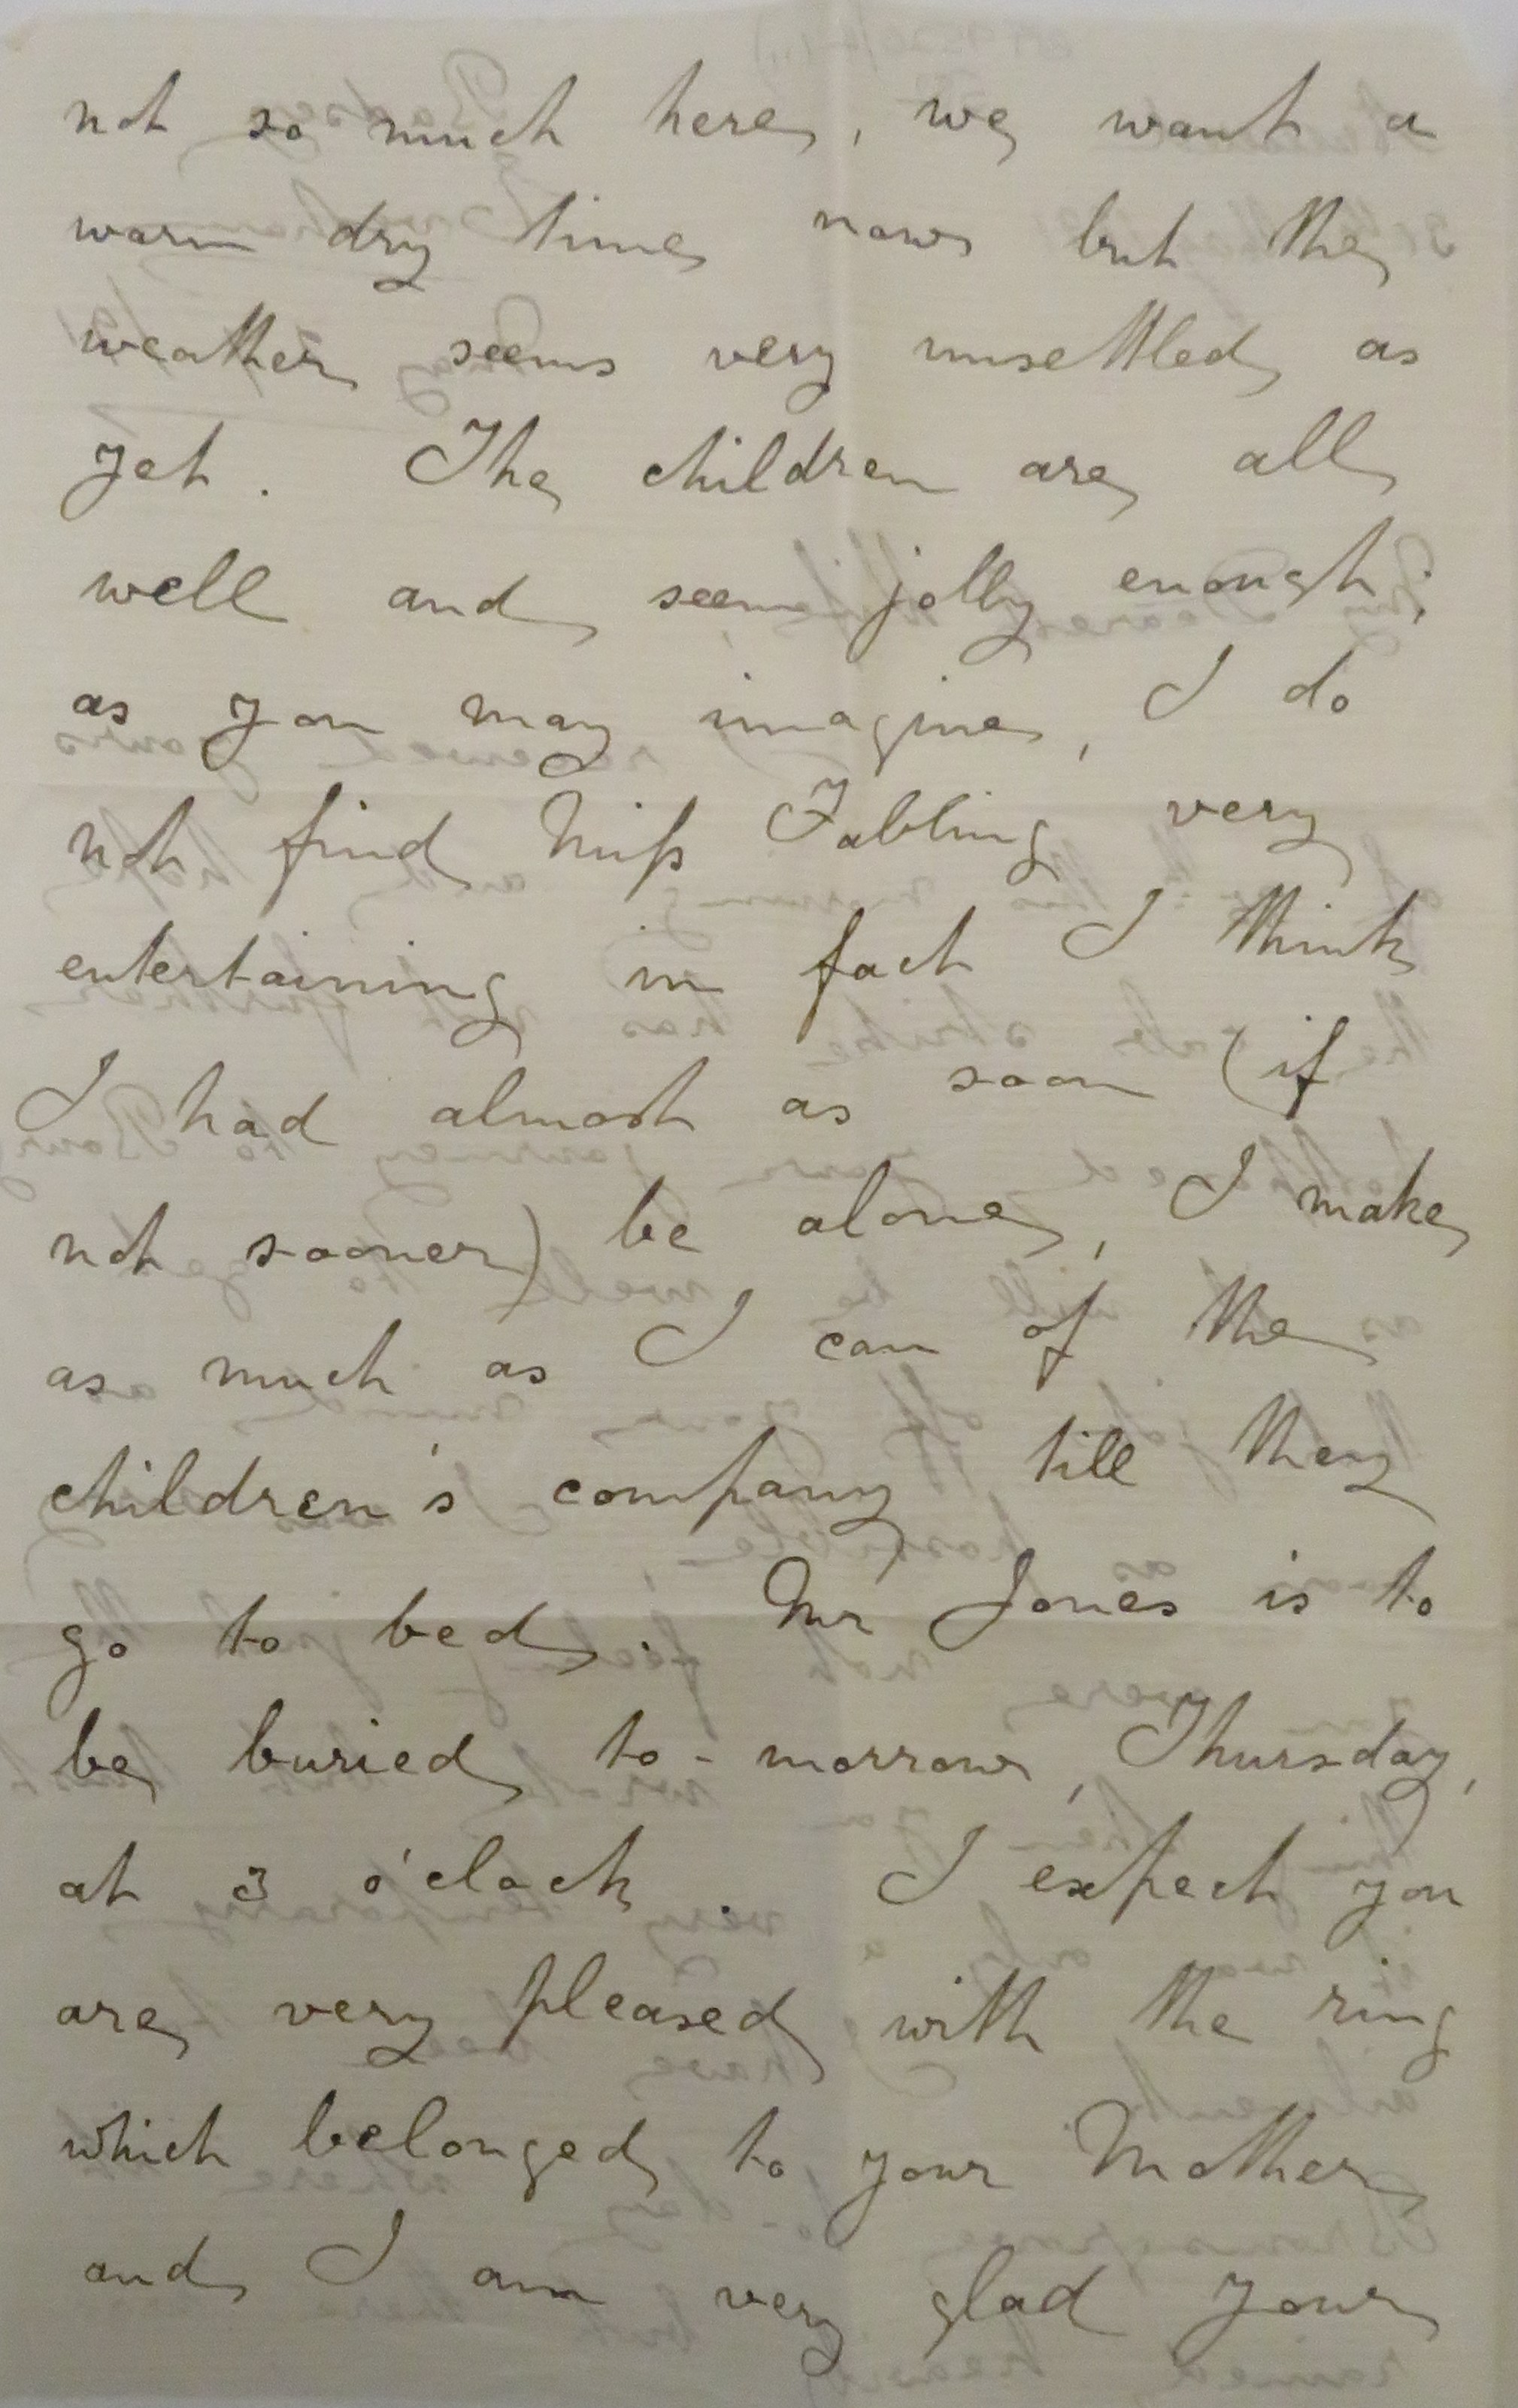 not so much here, we want a
warm dry time now but the
weather seems very unsettled as
yet. The children are all
well and seem jolly enough;
as you may imagine, I do
not find Miss Fabling very
entertaining in fact I think
I had almost as soon (if
not sooner) be alone, I make
as much as I can of the
children's company till they
go to bed. Mr Jones is to
be buried to-morrow, Thursday,
at 3 o'clock. I expect you
are very pleased with the ring
which belonged to your Mother
and I am very glad your